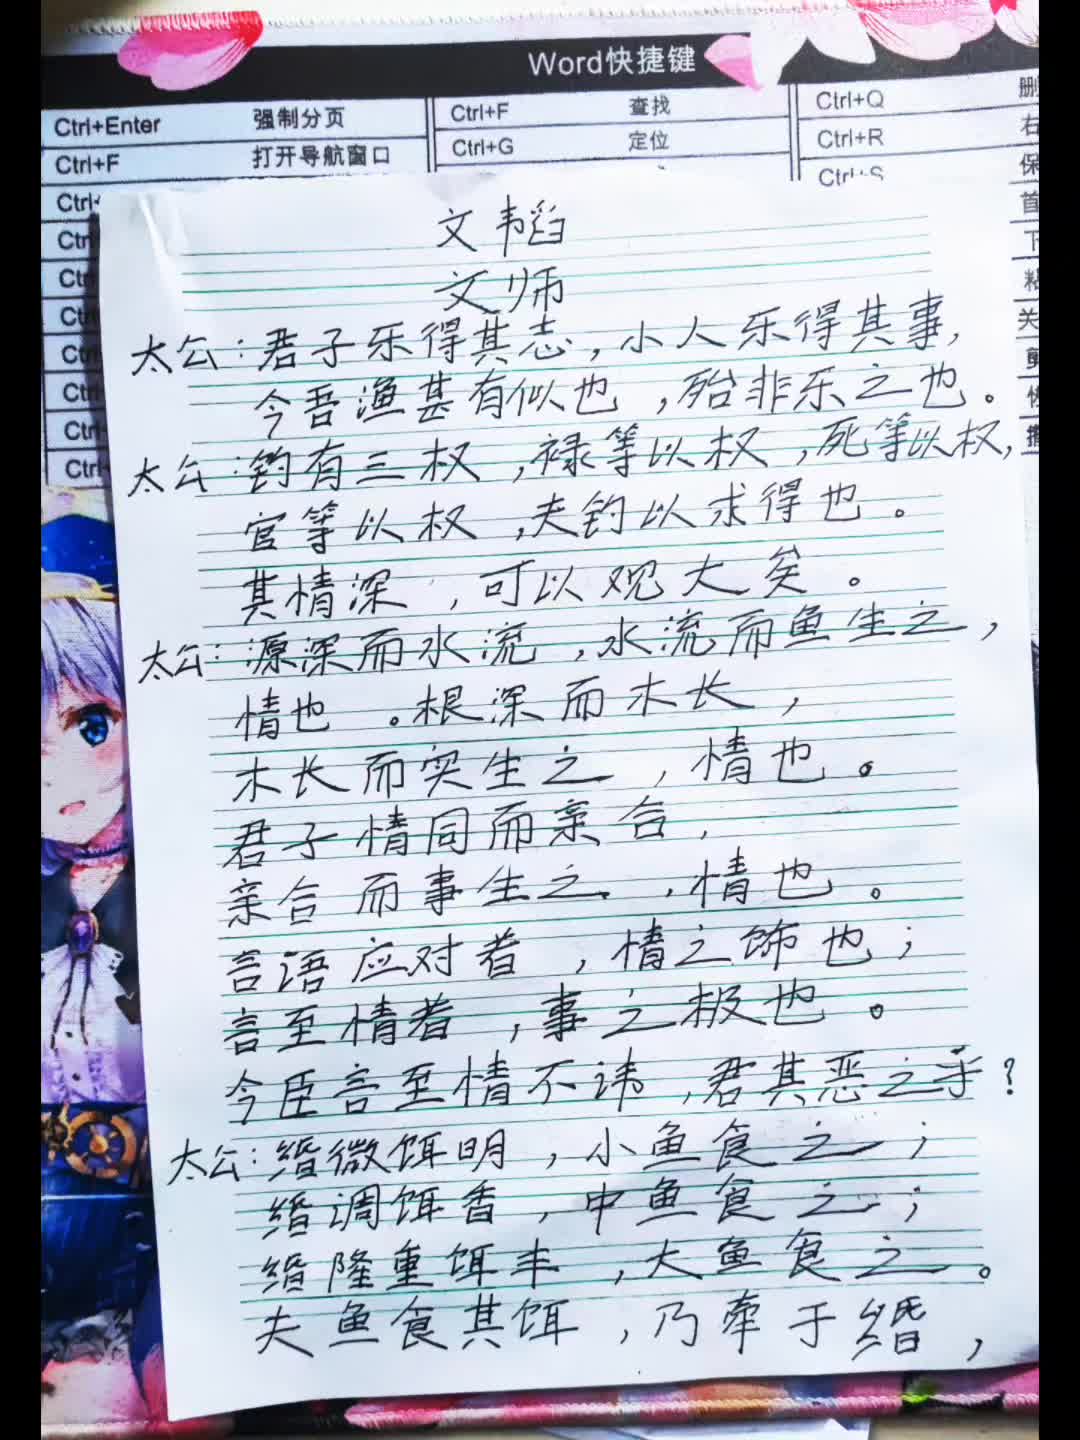 Word快捷键
Ctrl+Enter 强制分页 Ctrl+F 查找 Ctrl+Q 删
Ctrl+F 打开导航窗口 Ctrl+G 定位 Ctrl+R 右
Ctrl+S 保
首
下
粘
关
文韬
文师
太公:君子乐得其志,小人乐得其事,
今吾渔甚有似也,殆非乐之也。
太公:钓有三权,禄等以权,死等以权,
官等以权,夫钓以求得也。
其情深,可以观大矣。
太公:源深而水流,水流而鱼生之,
情也。根深而木长,
木长而实生之,情也。
君子情同而亲合,
亲合而事生之,情也。
言语应对者,情之饰也;
言至情者,事之极也。
今臣言至情不讳,君其恶之乎?
太公:缗微饵明,小鱼食之;
缗调饵香,中鱼食之;
缗隆重饵丰,大鱼食之。
夫鱼食其饵,乃牵于缗,